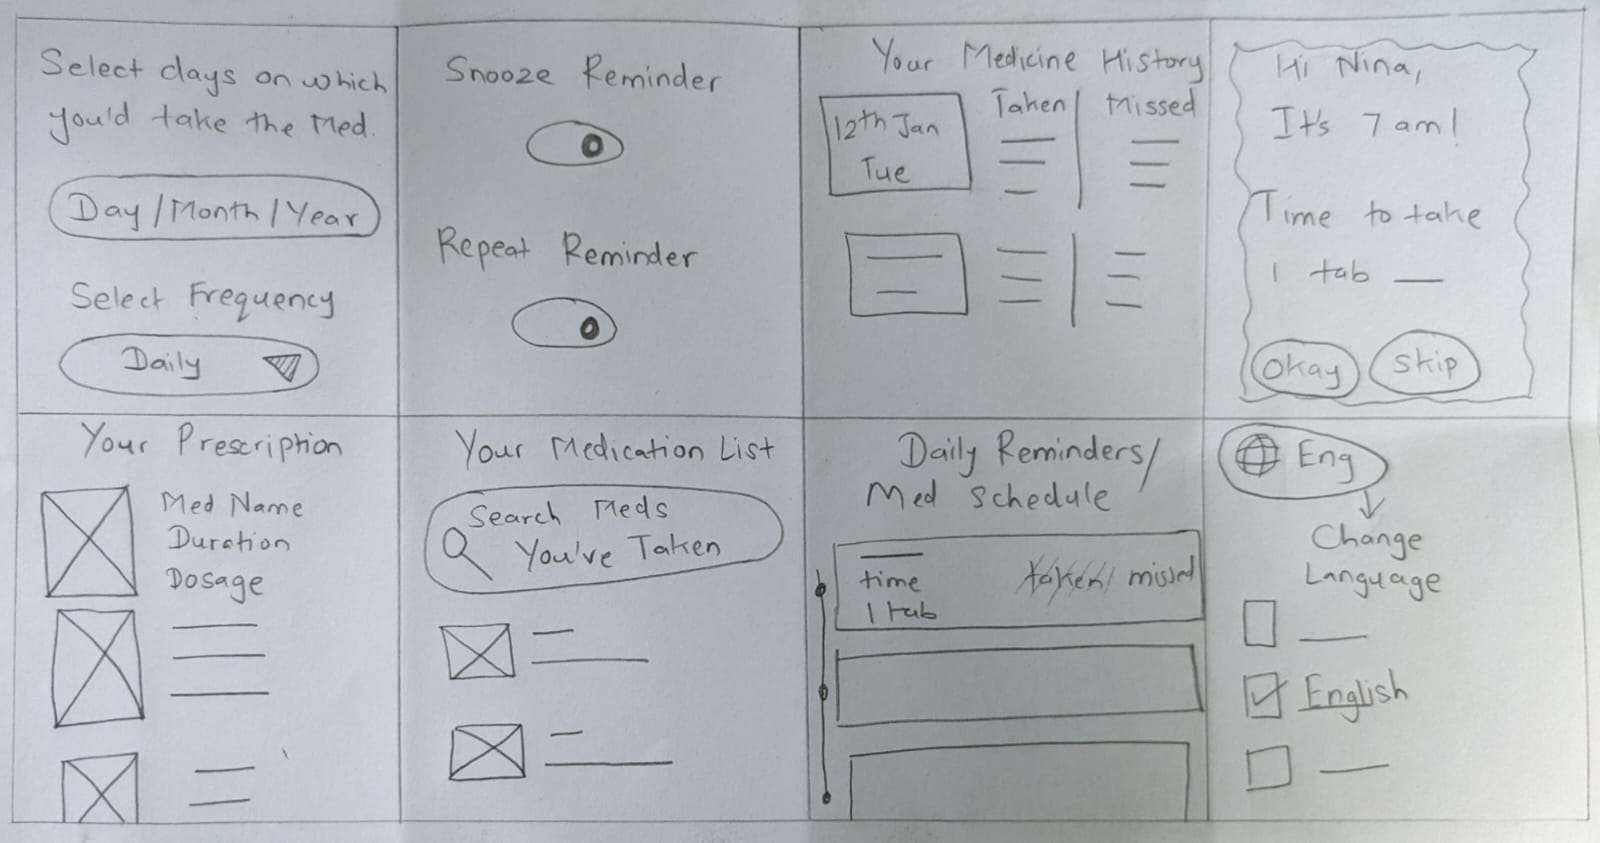 Select days on which
you'd take the Med.
Day/Month/Year
Select Frequency
Daily
Snooze Reminder
Repeat Reminder
Your Medicine History
12th Jan
Tue
Taken
Missed
Hi Nina,
It's 7 am!
Time to take
1 tab
Okay
Skip
Your Prescription
Med Name
Duration
Dosage
Your Medication List
Search Meds
You've Taken
Daily Reminders/
Med Schedule
time
taken/ missed
1 tab
Eng
Change
Language
English